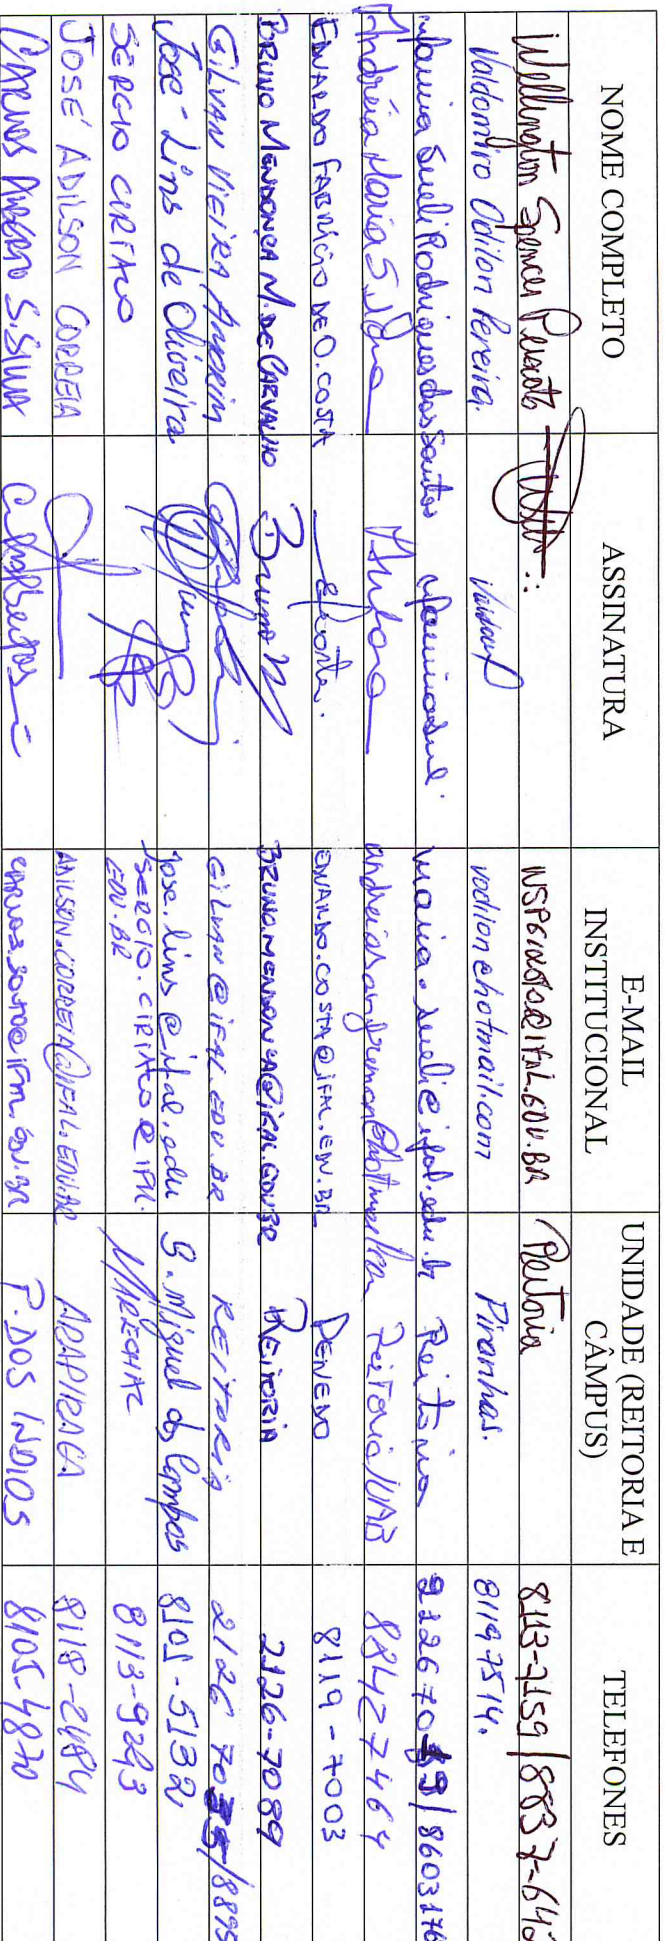 NOME COMPLETO ASSINATURA E-MAIL INSTITUCIONAL UNIDADE (REITORIA E CÂMPUS) TELEFONES
Wellington Spencer Peixoto Reitoria 8113-7159/8837-645
Valdomiro Odilon Pereira. vodilon@hotmail.com Piranhas. 81197514.
Maria Sueli Rodrigues dos Santos maria.sueli@ifal.edu.br Reitoria
Andréia Maria S. Reitoria/UAB 88427464
EDNALDO FABRÍCIO DE O. COSTA EDNALDO.COSTA@IFAL.EDU.BR PENEDO 8119-7003
BRUNO MENDONÇA M. DE CARVALHO Bruno M BRUNO.MENDONCA@IFAL.EDU.BR REITORIA 2126-7089
GILVAN VIEIRA AMORIM GILVAN@IFAL.EDU.BR REITORIA
José Lins de Oliveira jose.lins@ifal.edu S. Miguel dos Campos 8105-5132
SERGIO CIRIACO SERGIO.CIRIACO@IFAL.EDU.BR MARECHAL 8113-9243
JOSÉ ADILSON CORREIA ADILSON.CORREIA@IFAL.EDU.BR ARAPIRACA 8118-2484
CARLOS ALBERTO S. SILVA P. DOS ÍNDIOS 8105-4870